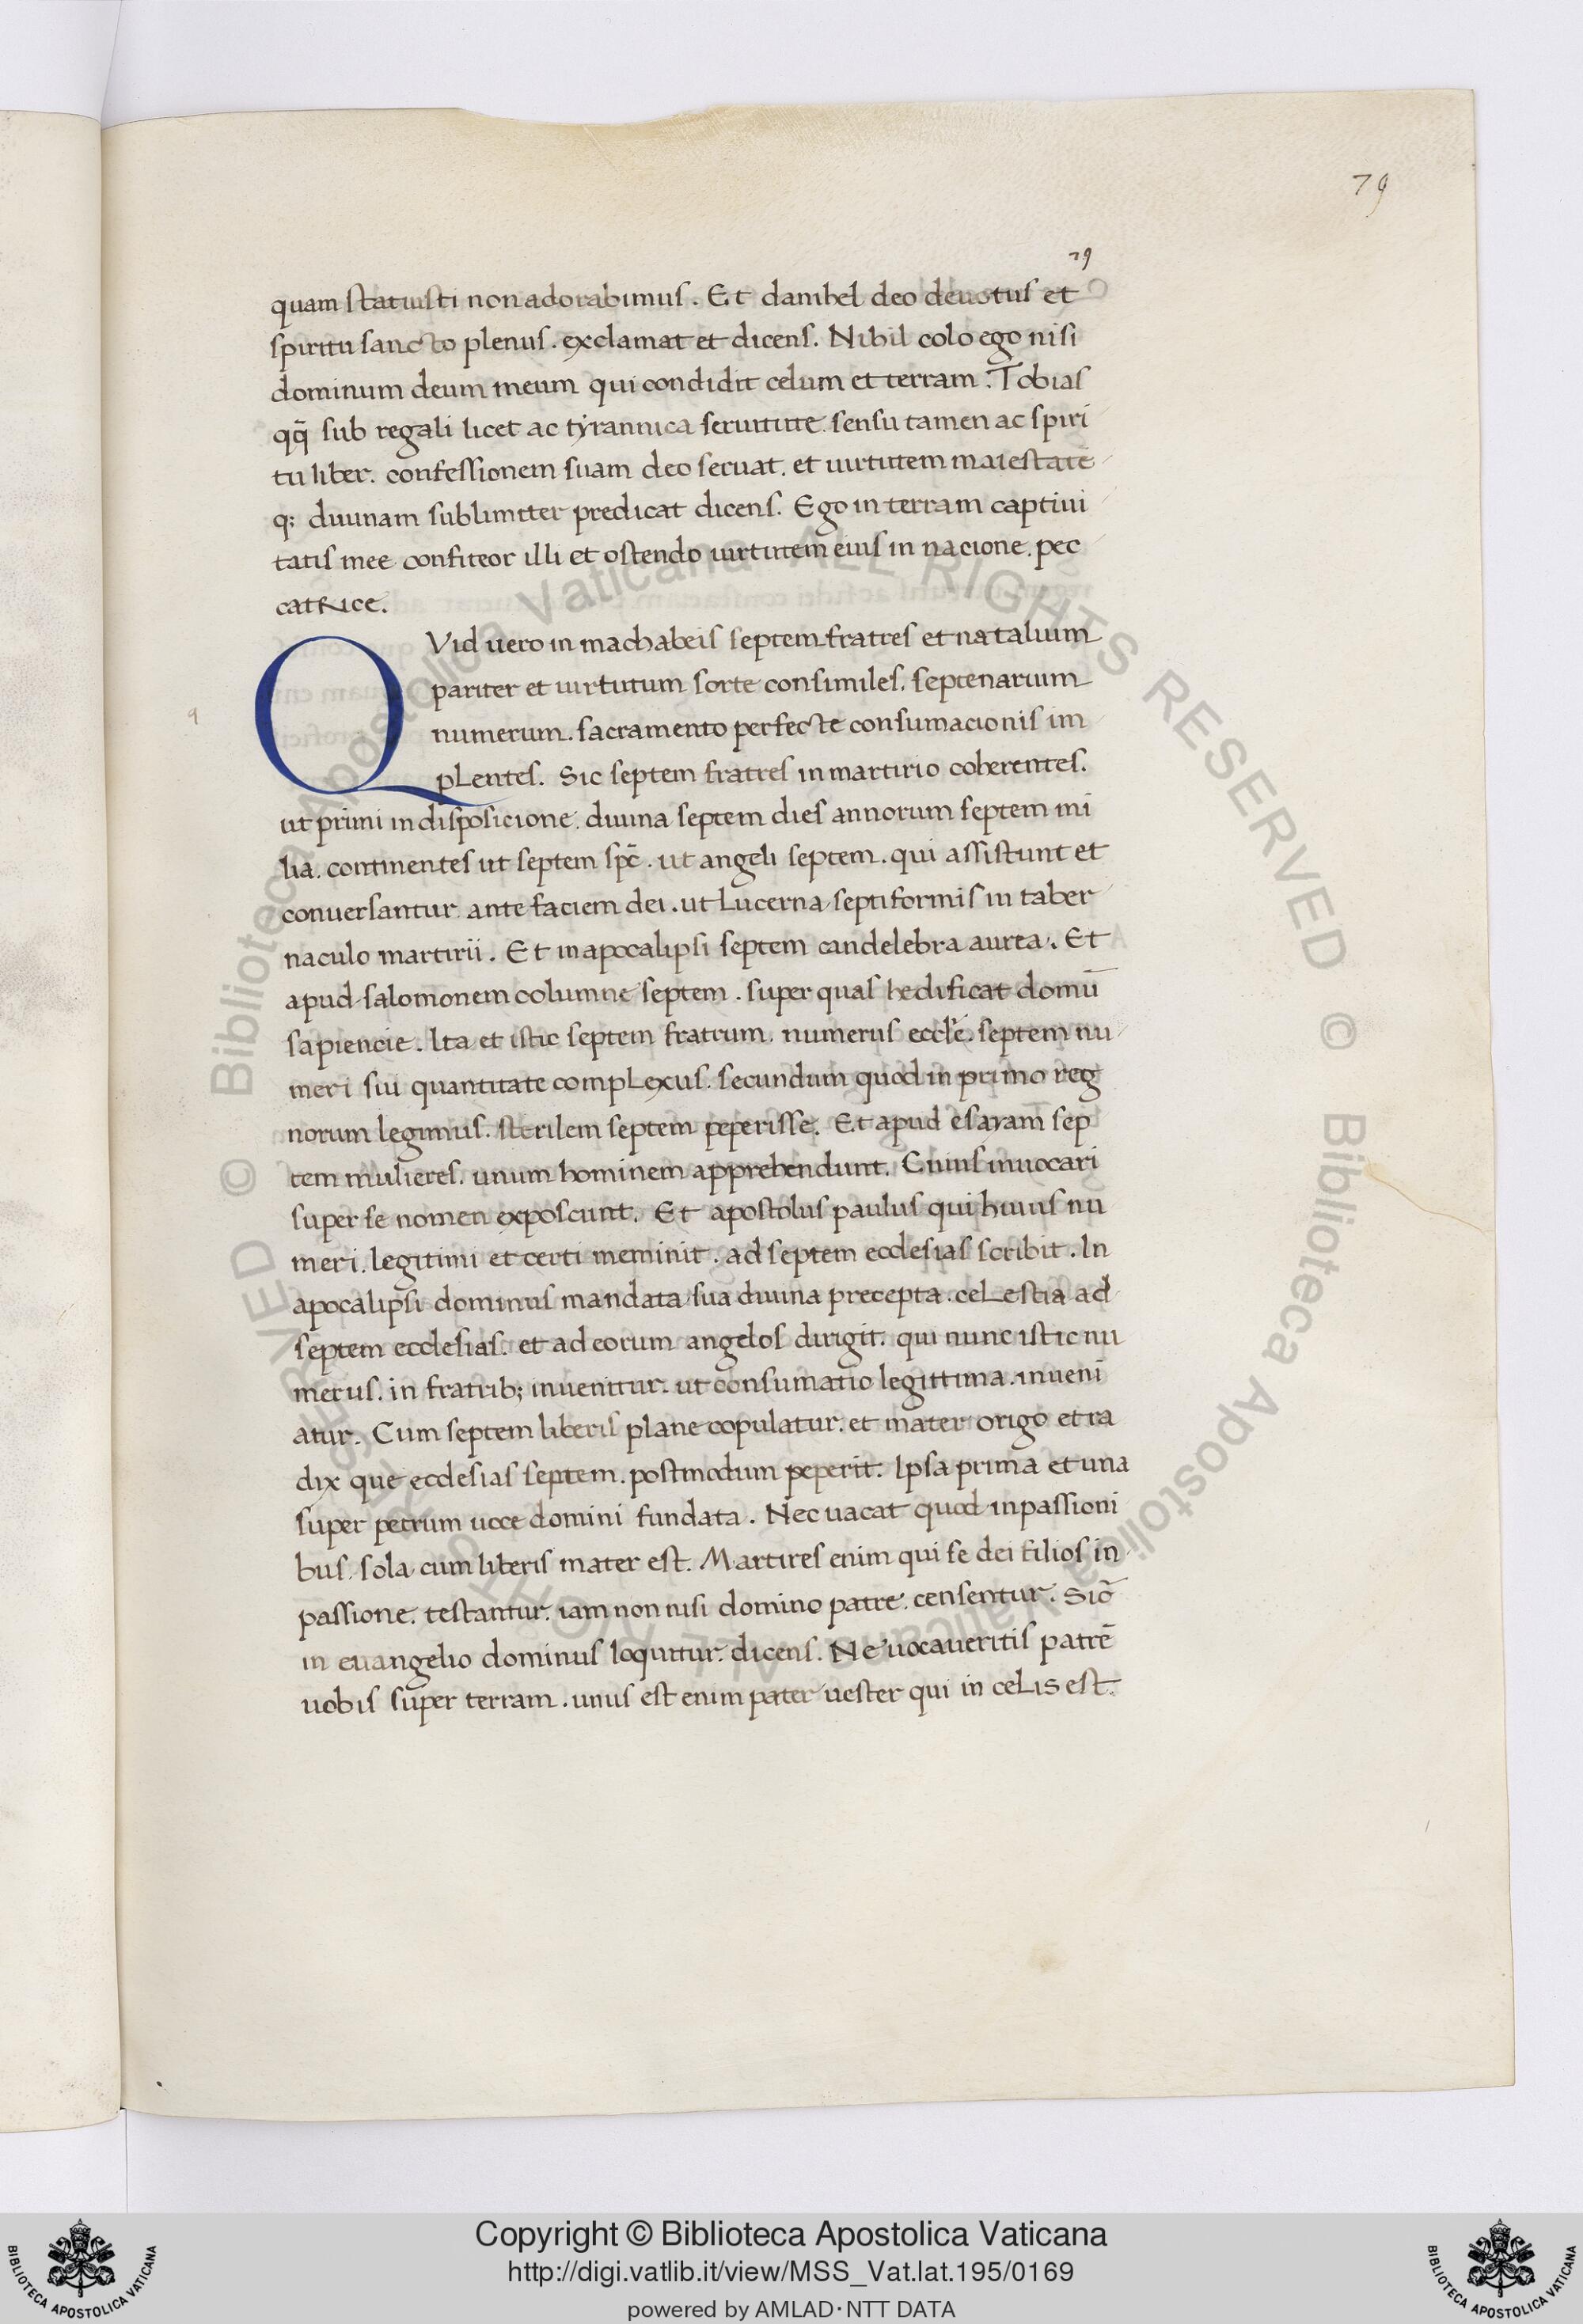 79
79
quam statuisti non adorabimus. Et danihel deo deuotus et
spiritu sancto plenus. exclamat et dicens. Nihil colo ego nisi
dominum deum meum qui condidit celum et terram. Tobias
qq̄ sub regali licet ac tyrannica seruitute. sensu tamen ac spiri
tu liber. confessionem suam deo seruat. et uirtutem maiestatē
q; diuinam sublimiter predicat dicens. Ego in terram captiui
tatis mee confiteor illi et ostendo uirtutem eius in nacione pec
catrice.
QVid uero in machabeis septem fratres et natalium
pariter et uirtutum sorte consimiles. septenarium
numerum. sacramento perfecte consumacionis im
plentes. Sic septem fratres in martirio coherentes.
ut primi in disposicione. diuina septem dies annorum septem mi
lia. continentes ut septem spc̄. ut angeli septem. qui assistunt et
conuersantur ante faciem dei. ut Lucerna septiformis in taber
naculo martirii. Et in apocalipsi septem candelebra aurea. Et
apud salomonem columne septem. super quas hedificat domū
sapiencie. Ita et istic septem fratrum. numerus eccłe. septem nu
meri sui quantitate complexus. secundum quod in primo reg
norum legimus. sterilem septem peperisse. Et apud esayam sep
tem mulieres. unum hominem apprehendunt. Cuius inuocari
super se nomen exposcunt. Et apostolus paulus qui huius nu
meri. legitimi et certi meminit. ad septem ecclesias scribit. In
apocalipsi dominus mandata sua diuina precepta. celestia ad
septem ecclesias. et ad eorum angelos dirigit. qui nunc istic nu
merus. in fratrib; inuenitur. ut consumatio legittima. inueni
atur. Cum septem liberis plane copulatur. et mater origo et ra
dix que ecclesias septem. postmodum peperit. Ipsa prima et una
super petrum uoce domini fundata. Nec uacat quod in passioni
bus. sola cum liberis mater est. Martires enim qui se dei filios in
passione. testantur. iam non nisi domino patre. censentur. Sic̄
in euangelio dominus loquitur. dicens. Ne uocaueritis patrē
uobis super terram. unus est enim pater uester qui in celis est.
9
© Biblioteca Apostolica Vaticana ALL RIGHTS RESERVED © Biblioteca Apostolica Vaticana ALL RIGHTS RESERVED
Copyright © Biblioteca Apostolica Vaticana
http://digi.vatlib.it/view/MSS_Vat.lat.195/0169
powered by AMLAD·NTT DATA
BIBLIOTECA APOSTOLICA VATICANA
BIBLIOTECA APOSTOLICA VATICANA